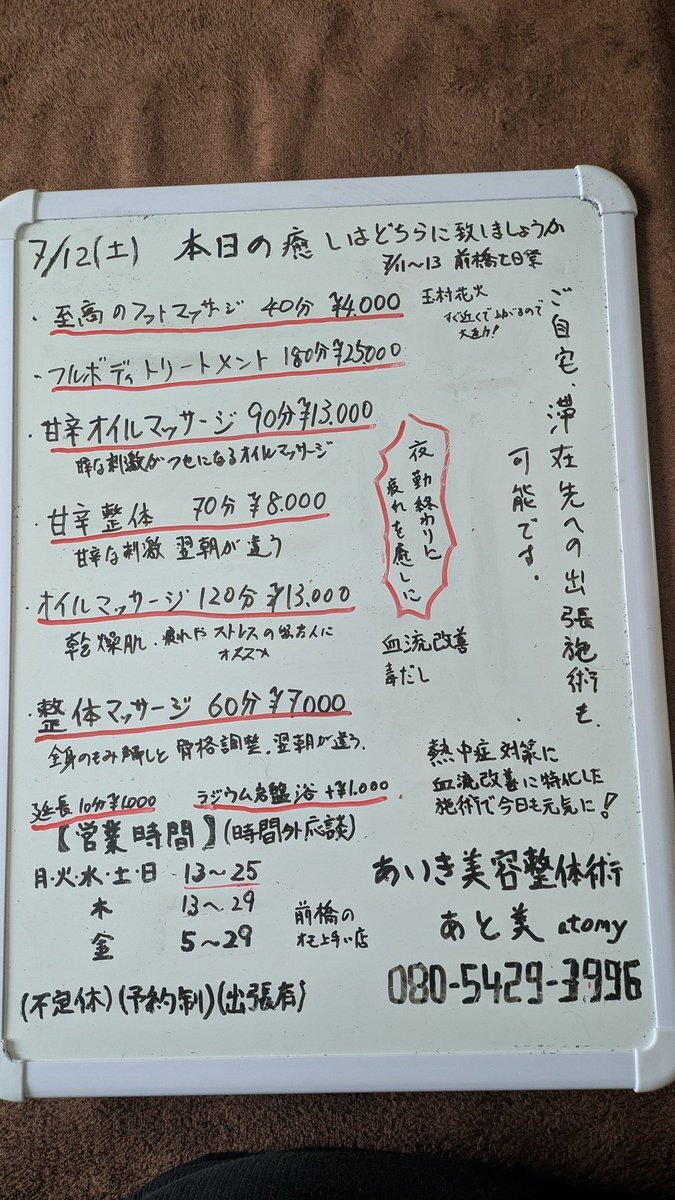 7/12(土) 本日の癒しはどちらに致しましょうか
7/11～13 前橋七日祭
・至高のフットマッサージ 40分 ¥4.000
玉村花火
すぐ近くで上がるので
大迫力!
・フルボディトリートメント 180分¥25000
・甘辛オイルマッサージ 90分¥13.000
な刺激がクセになるオイルマッサージ
・甘辛整体 70分 ¥8.000
甘辛な刺激 翌朝が違う
・オイルマッサージ 120分 ¥13.000
乾燥肌・疲れやストレスの方に
オススメ
・整体マッサージ 60分 ¥7000
全身のもみ解しと骨格調整。翌朝が違う。
延長10分¥1000 ラジウム岩盤浴 +¥1.000
夜勤終わりに
疲れを癒しに
血流改善
毒だし
ご自宅、滞在先への出張施術も
可能です。
熱中症対策に
血流改善に特化した
施術で今日も元気に!
【営業時間】(時間外応談)
月・火・水・土・日 13～25
木 13～29
金 5～29
前橋の
店
(不定休)(予約制)(出張有)
あいき美容整体術
あと美 atomy
080-5429-3996